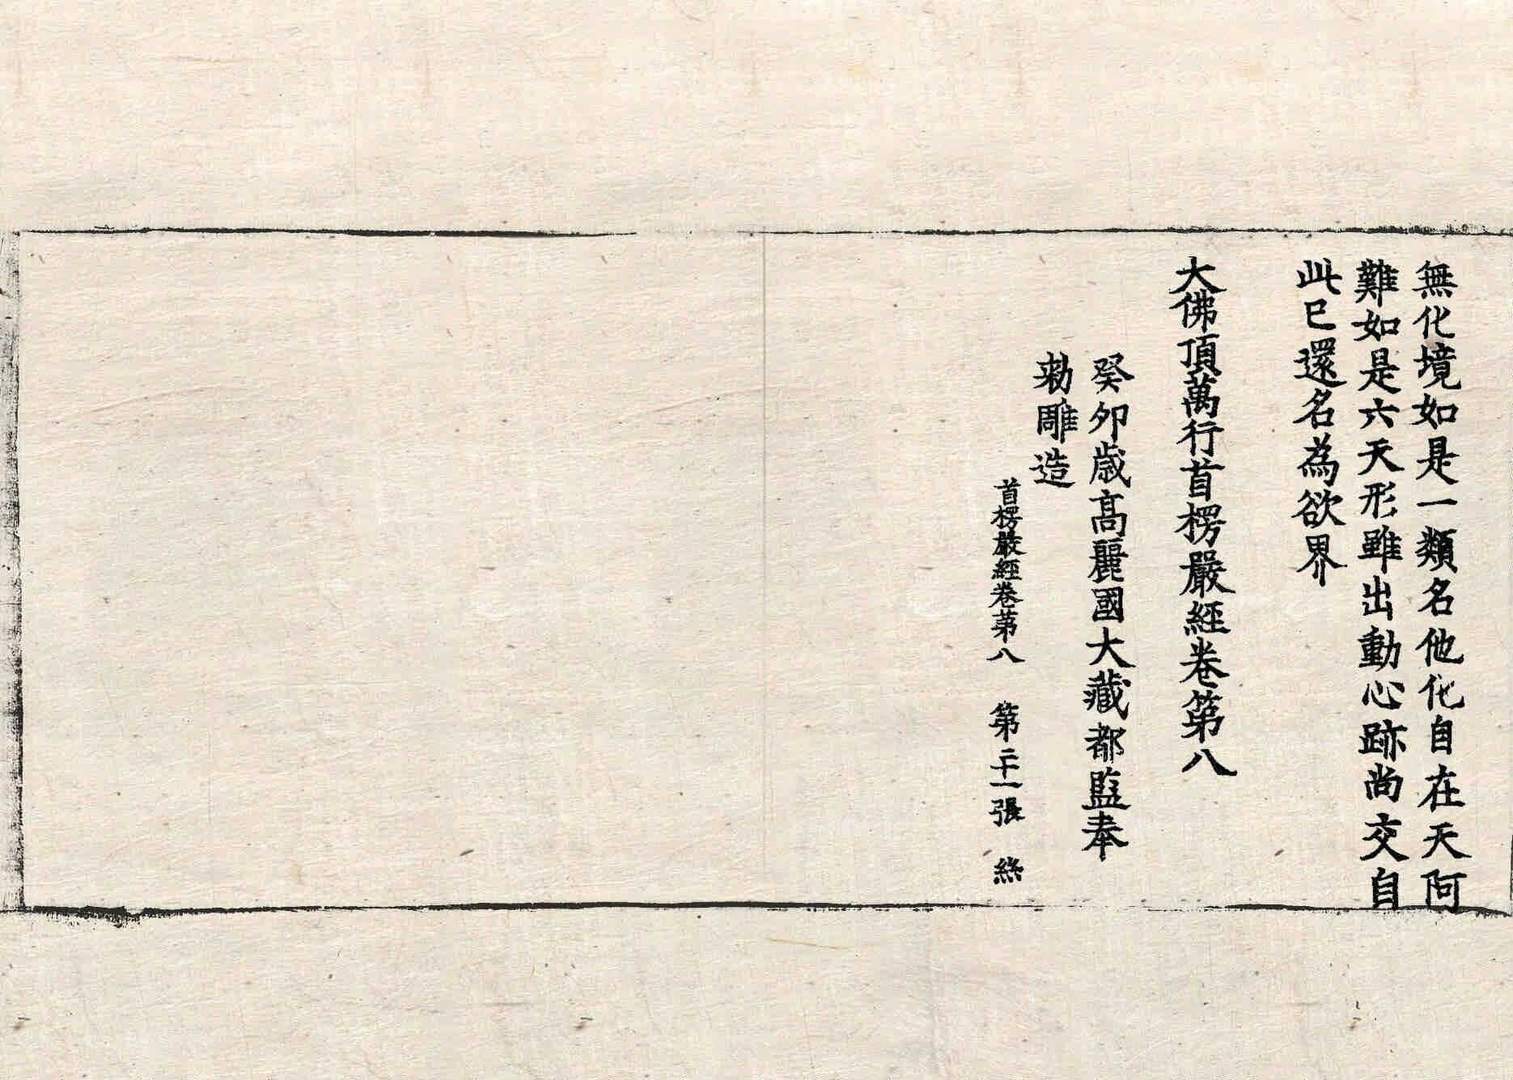 無化境如是一類名他化自在天阿
難如是六天形雖出動心跡尚交自
此已還名為欲界
大佛頂萬行首楞嚴經卷第八
癸卯歳高麗國大藏都監奉
勑雕造
首楞嚴經卷第八 第二十一張 絲